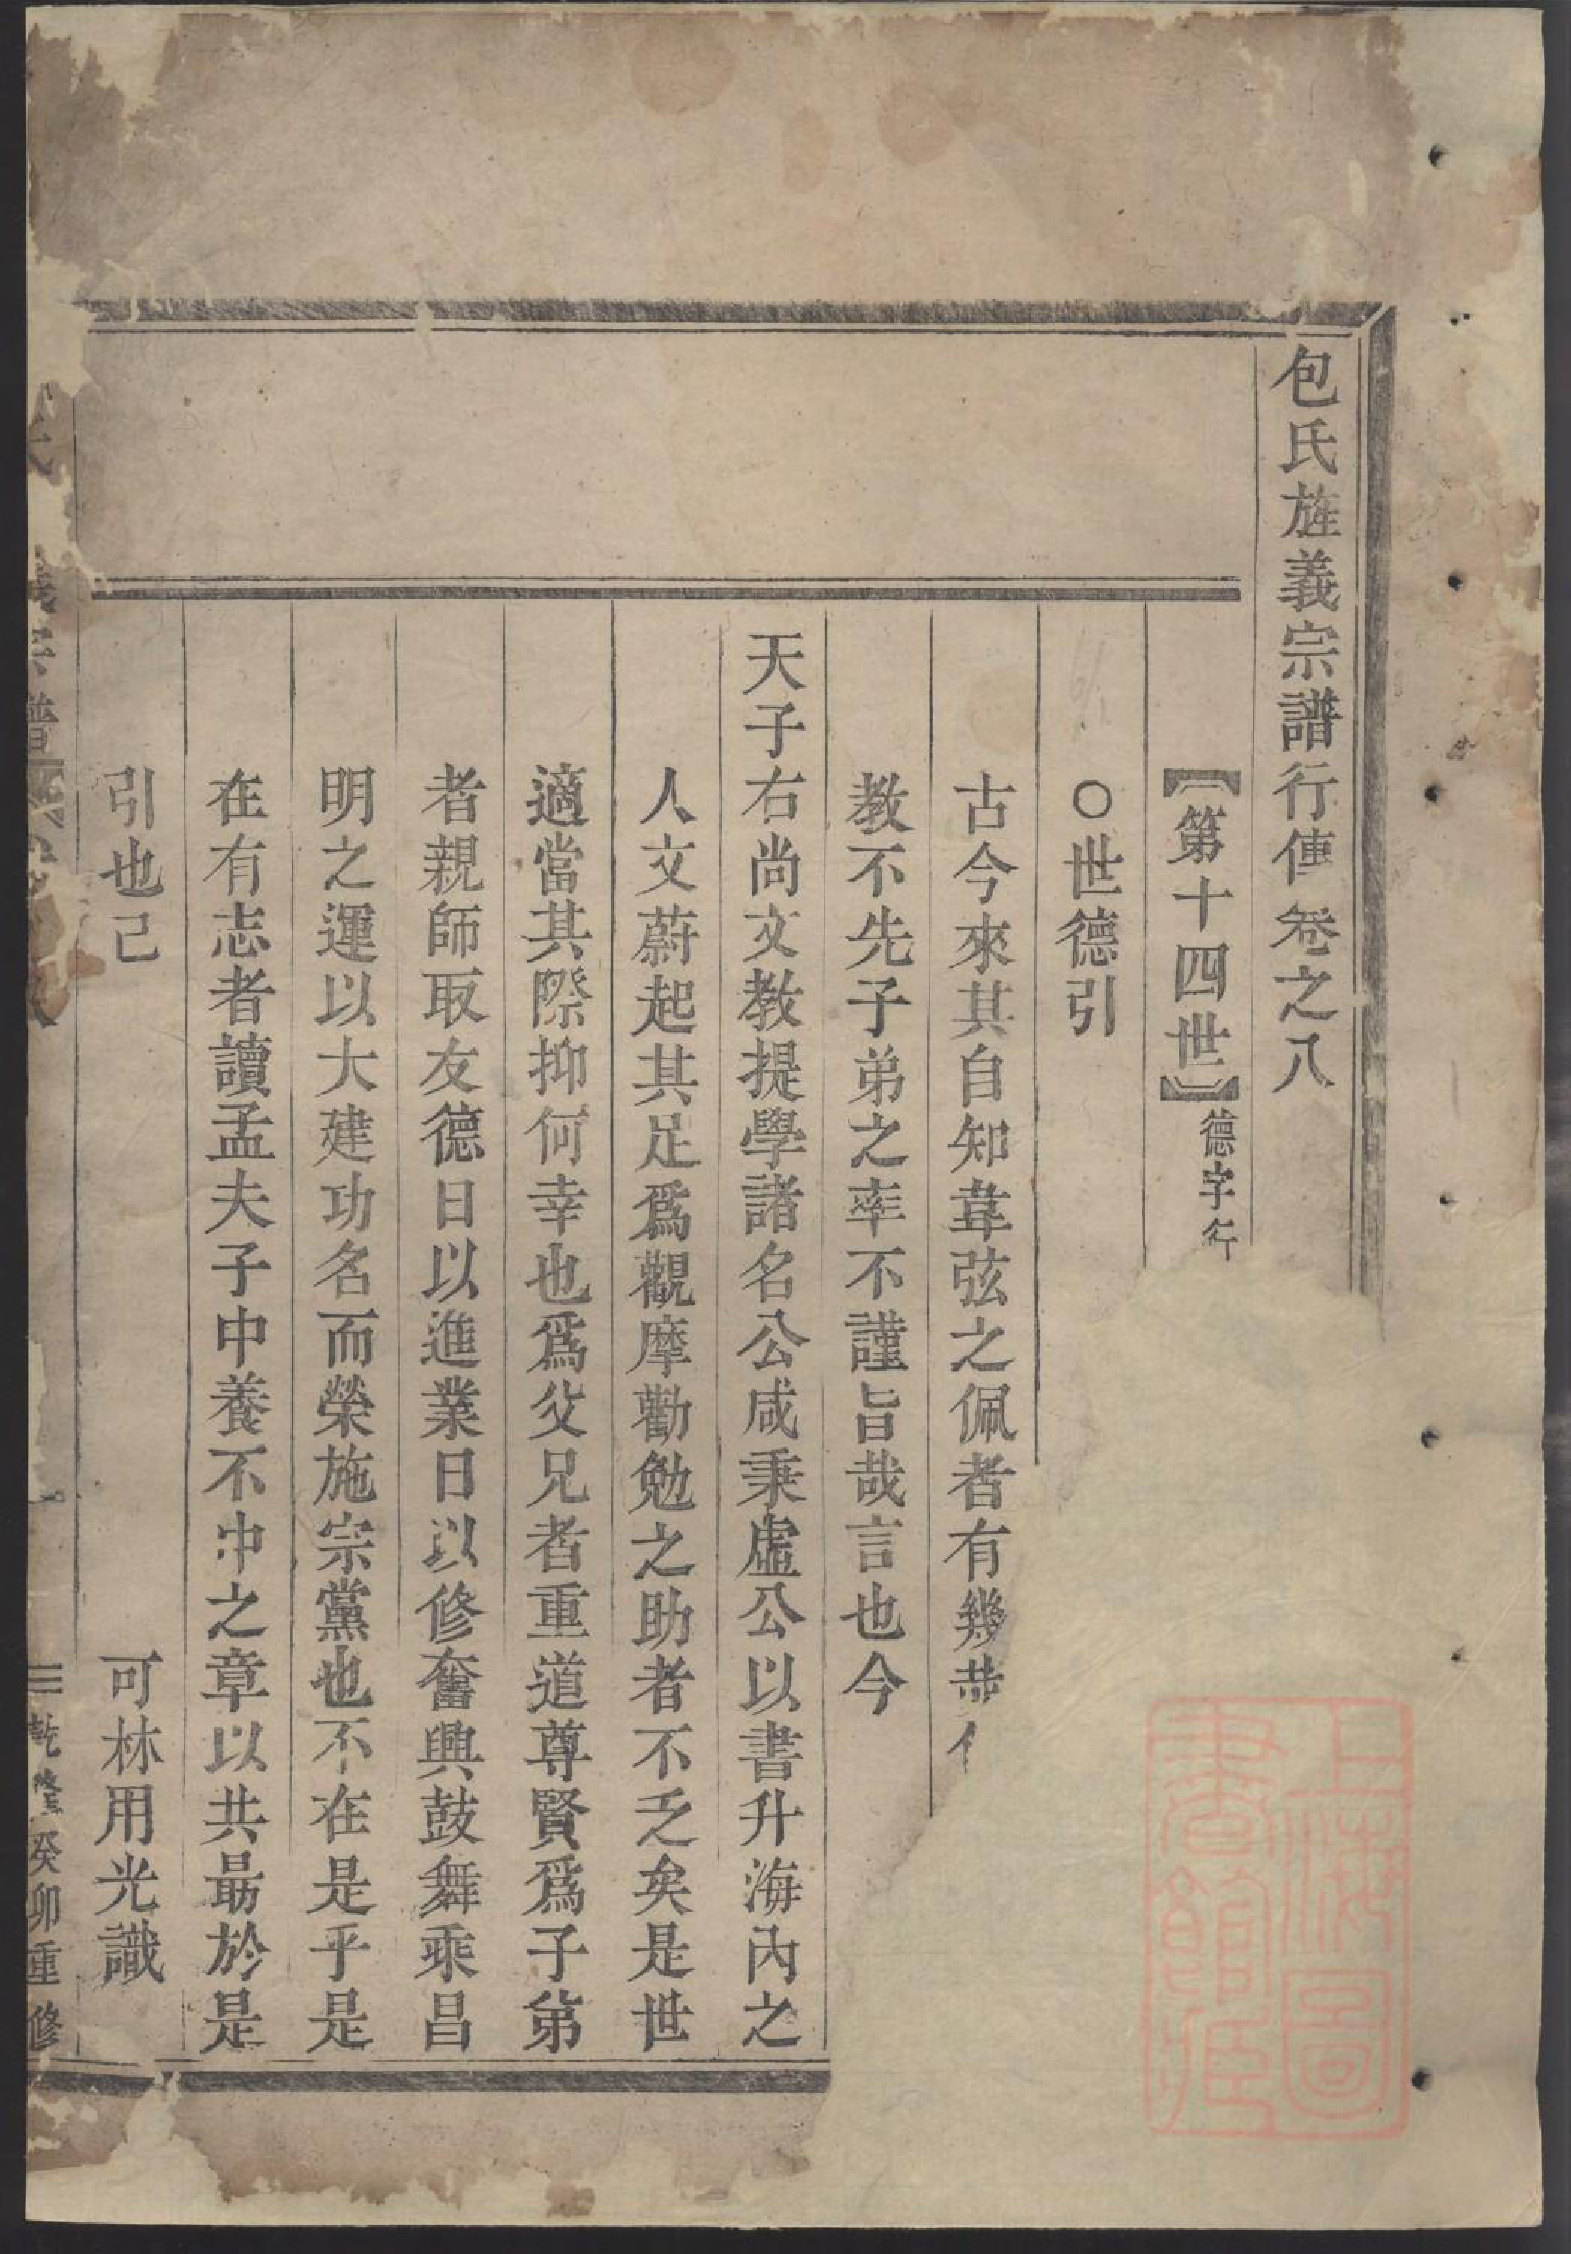 包氏旌義宗譜行傳卷之八
【第十四世】德字行
○世德引
古今來其自知韋弦之佩者有幾
教不先子弟之率不謹旨哉言也今
天子右尚文教提學諸名公咸秉虛公以書升海內之
人文蔚起其足爲觀摩勸勉之助者不乏矣是世
適當其際抑何幸也爲父兄者重道尊賢爲子第
者親師取友德日以進業日以修奮興鼓舞乘昌
明之運以大建功名而榮施宗黨也不在是乎是
在有志者讀孟夫子中養不中之章以共最於是
引也己
可林用光識
宗譜
三乾隆癸卯重修
上海圖書館藏